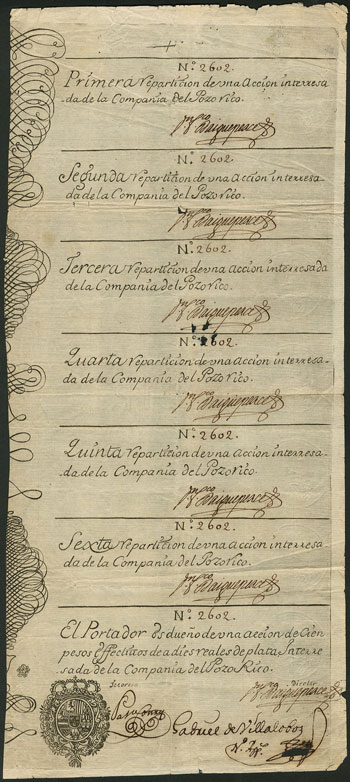 Nº 2602.
Primera reparticion de vna Accion interresa
da de la Compania del Pozo rico.
Nº 2602.
Segunda reparticion de vna Accion interresa
da de la Compania del Pozo rico.
Nº 2602.
Tercera reparticion de vna Accion interresada
de la Compania del Pozo rico.
Nº 2602.
Quarta reparticion de vna Accion interresa
da de la Compania del Pozo rico.
Nº 2602.
Quinta reparticion de vna Accion interresa
da de la Compania del Pozo rico.
Nº 2602.
Sexta reparticion de vna Accion interresa
da de la Compania del Pozo rico.
Nº 2602.
El Portador es dueño de vna accion de Cien
pesos Effectivos de a dies reales de plata Interre
sada de la Compania del Pozo Rico.
Gabriel de Villalobos